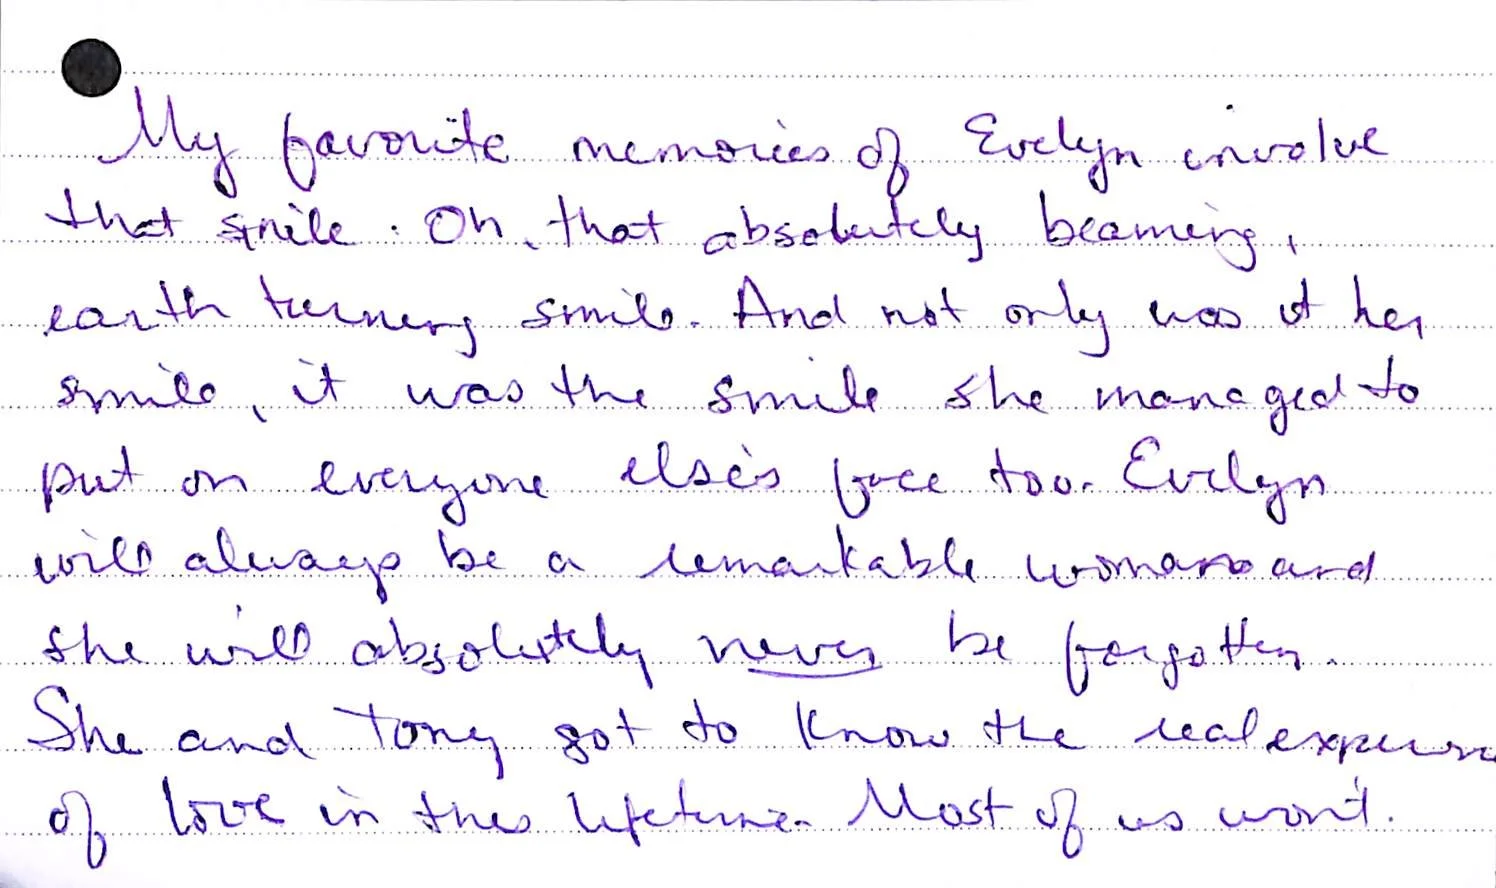 My favorite memories of Evelyn involve
that smile. Oh, that absolutely beaming,
earth turning smile. And not only was it her
smile, it was the smile she managed to
put on everyone else's face too. Evelyn
will always be a remarkable woman and
she will absolutely never be forgotten.
She and Tony got to know the real
of love in this lifetime. Most of us won't.